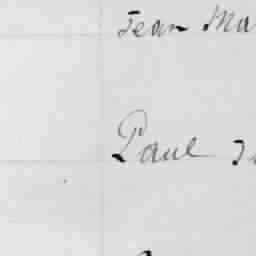 Jean Ma
Paul